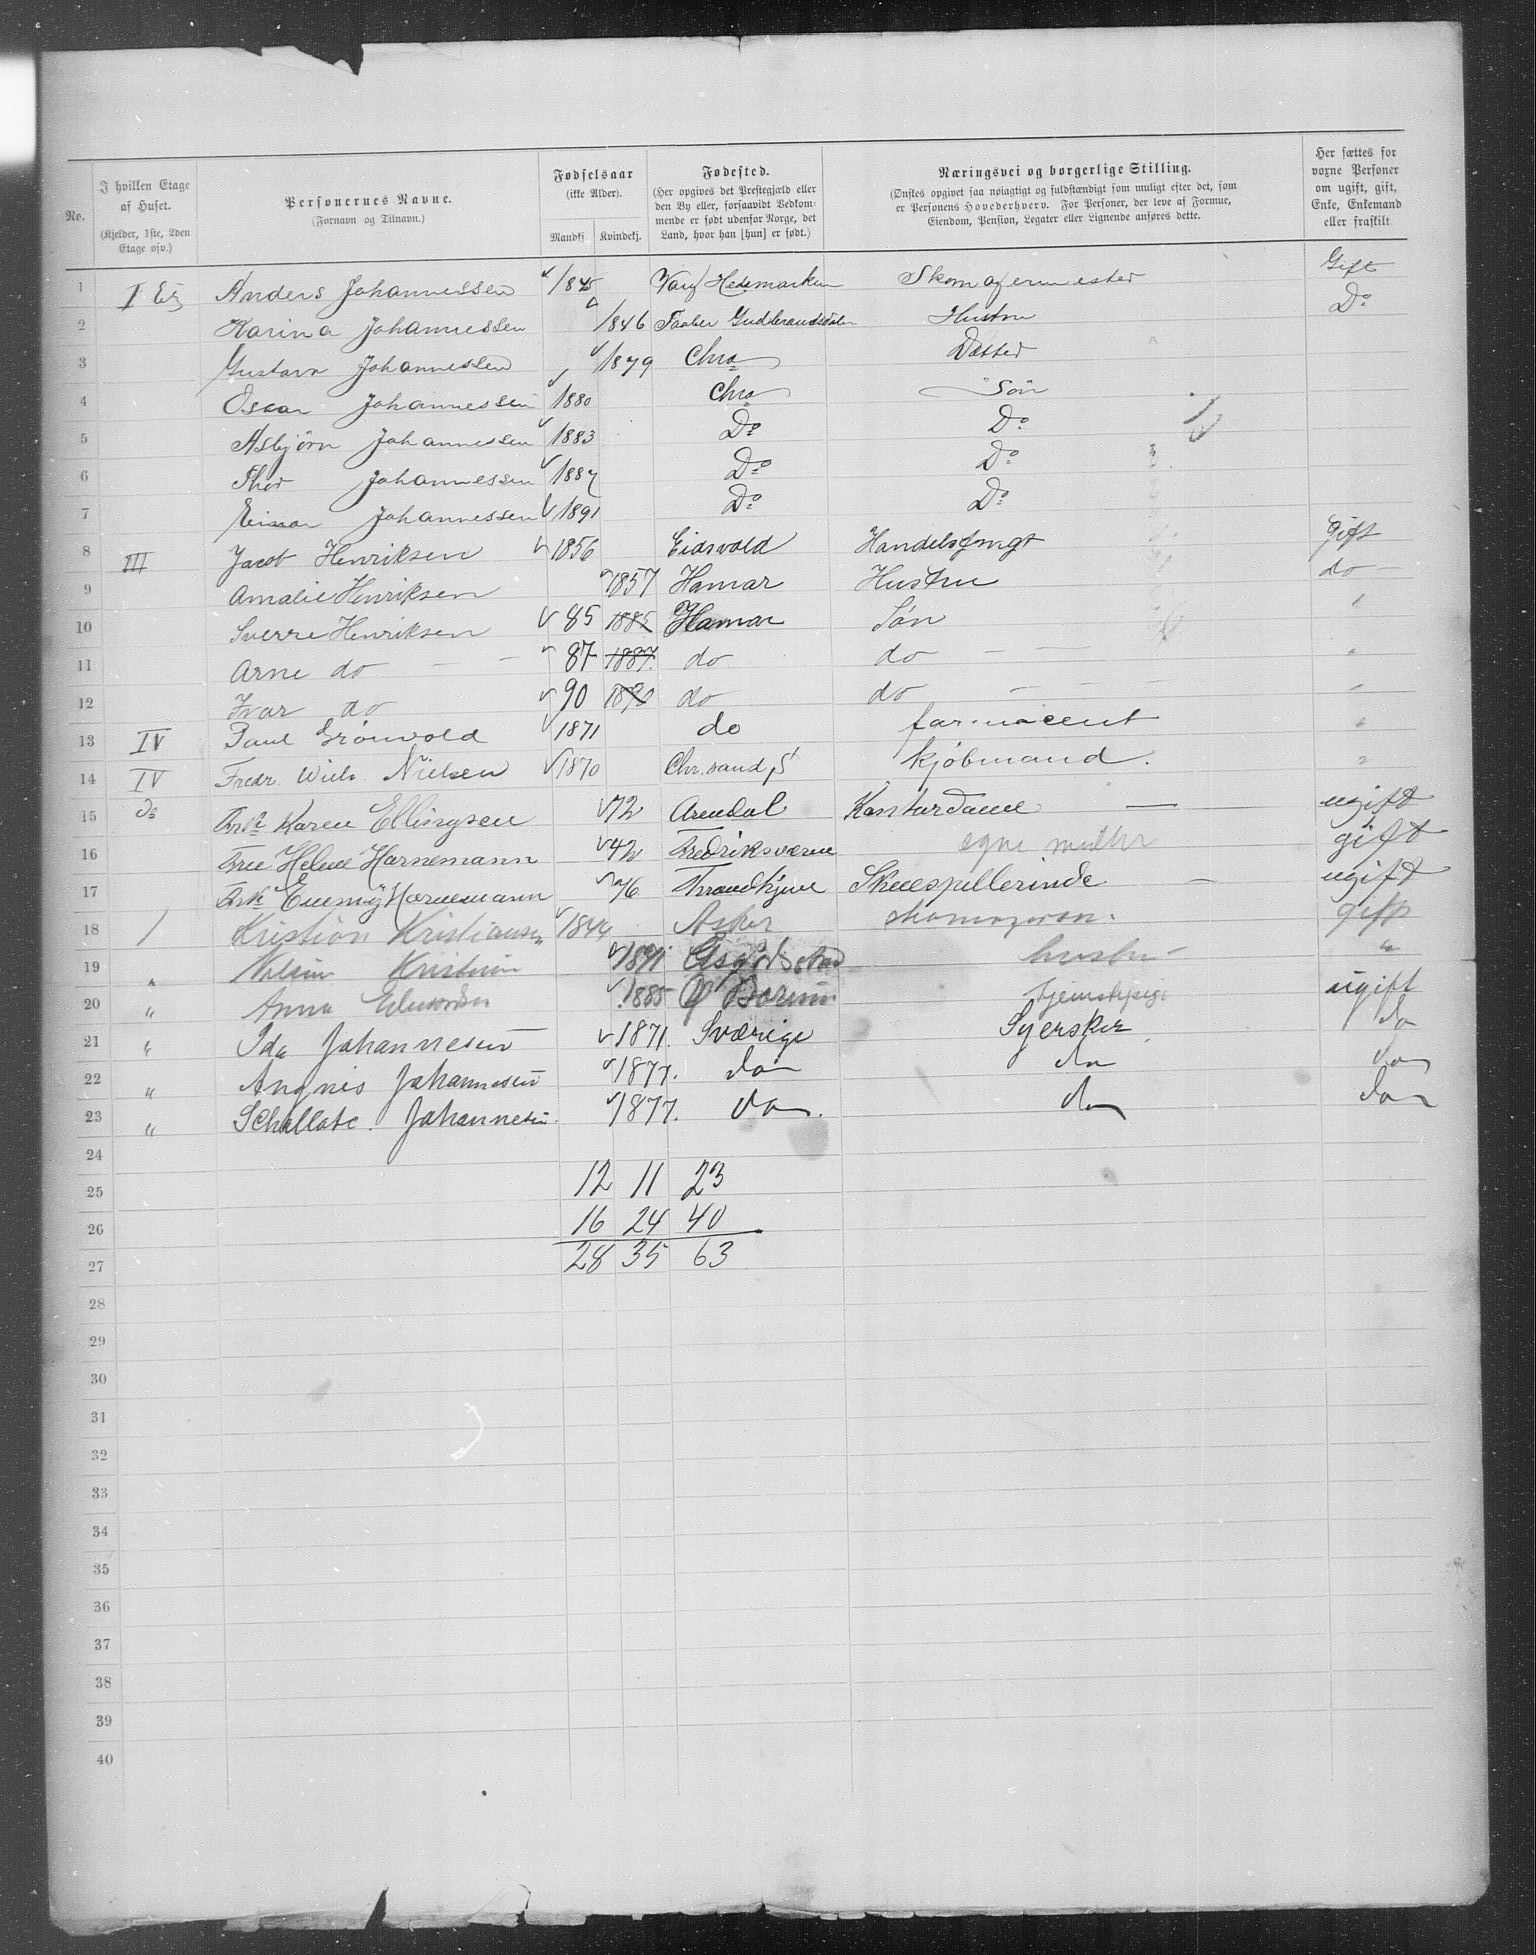 No.
I hvilken Etage af Huset.
(Kjelder, 1ste, 2den Etage osv.)
Personernes Navne.
(Fornavn og Tilnavn.)
Fødselsaar
(ikke Alder).
Mandkj. Kvindekj.
Fødested.
(Her opgives det Prestegjæld eller den By eller, forsaavidt Vedkommende er født udenfor Norge, det Land, hvor han [hun] er født.)
Næringsvei og borgerlige Stilling.
(Ønskes opgivet saa nøiagtigt og fuldstændigt som muligt efter det, som er Personens Hovederhverv. For Personer, der leve af Formue, Eiendom, Pension, Legater eller Lignende anføres dette.
Her sættes for voxne Personer om ugift, gift, Enke, Enkemand eller fraskilt.
1 I Etg Anders Johannessen 1845 Hedemarken Skomagermester Gift
2 Karina Johannessen 1846 Gudbrandsdalen Hustru Do
3 Gustava Johannessen 1879 Chra Datter
4 Oscar Johannessen 1880 Chra Søn
5 Asbjørn Johannessen 1883 Do Do
6 Thor Johannessen 1887 Do Do
7 Einar Johannessen 1891 Do Do
8 III Jacob Henriksen 1856 Eidsvold Handelsfmgt Gift
9 Amalie Henriksen 1857 Hamar Hustru do
10 Sverre Henriksen 85 1885 Hamar Søn
11 Arne do 87 1887. do do
12 Ivar do 90 1890 do do
13 IV Paul Grønvold 1871 do farmaceut
14 IV Fredr. Wilh. Nielsen 1870 Chr.sand S kjøbmand.
15 do Frk. Karen Ellingsen 72 Arendal Kontordame ugift
16 Frue Helene Hornemann 42 Fredriksværn egne midler gift
17 Frk. Emmy Hornemann 76 Throndhjem Skuespillerinde ugift
18 1 Kristian Kristiansen 1844 Asker gift
19 " Kristian 1841 hustru "
20 " Anna 1885 Ø Bærum tjenestpige ugift
21 " Ida Johannesen 1871. Sværige Syerske do
22 " Angnis Johannesen 1877. do do do
23 " Schallote. Johannesen. 1877. do. do do
24
25 12 11 23
26 16 24 40
27 28 35 63
28
29
30
31
32
33
34
35
36
37
38
39
40